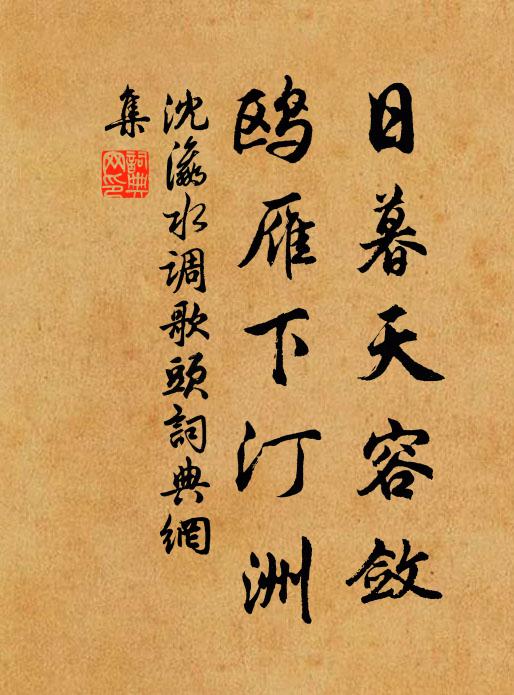 日暮天容斂
鸥雁下汀洲
沈瀛水调歌頭詞典網
集
詞典网印